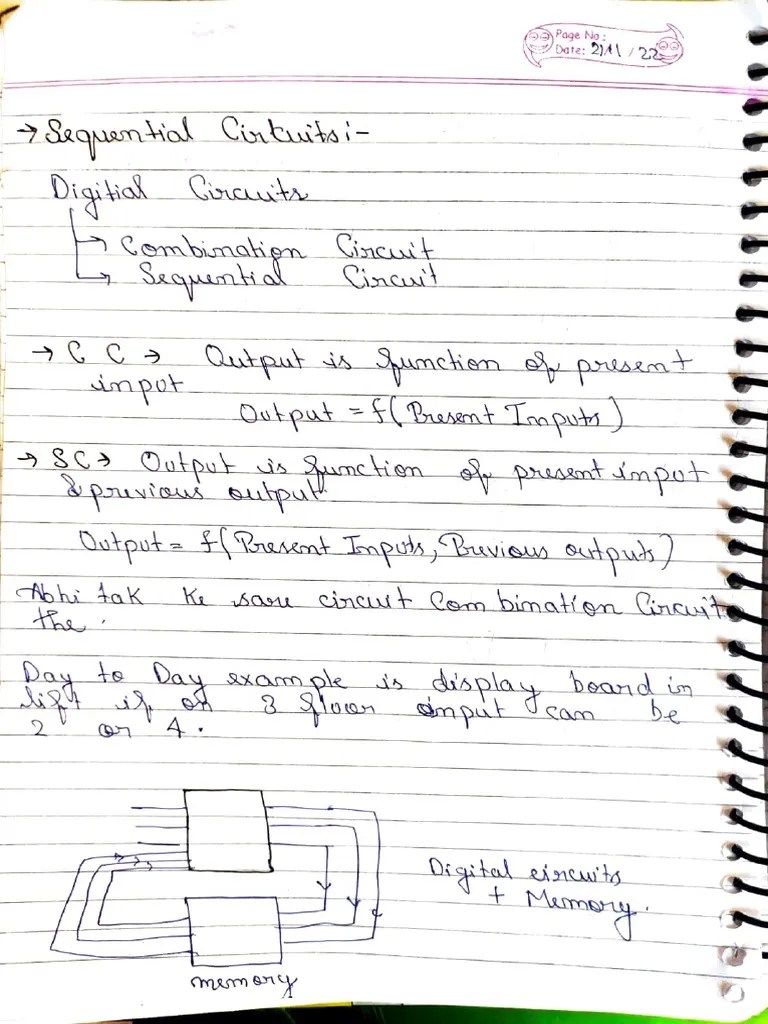 Page No:
Date: 21/11/22
→ Sequential Circuits:-
Digitial Circuits
→ Combination Circuit
→ Sequential Circuit
→ C C → Output is function of present
input
Output = f(Present Inputs)
→ SC → Output is function of present input
& previous output.
Output = f(Present Inputs, Previous outputs)
Abhi tak ke sare circuit Combination Circuit
the.
Day to Day example is display board in
lift if on 3 floor input can be
2 or 4.
Digital circuits
+ Memory.
memory